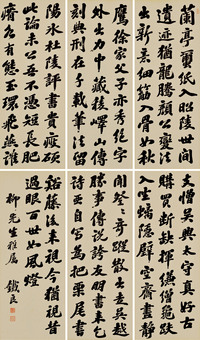 蘭亭繭紙入昭陵世間
遺迹猶龍騰顏公變法
出新意細筋入骨如秋
鷹徐家父子亦秀絕字
外出力中藏稜嶧山傳
刻典刑在千載筆法留
陽冰杜陵評書貴瘦硬
此論未公吾不憑短長肥
瘠各有態玉環飛燕誰
敢憎吳興太守真好古
購買斷缺揮縑繒龜趺
入坐螭隱壁空齋晝靜
聞登登奇蹤散出走吳越
勝事傳說誇友朋書來乞
詩要自寫為把栗尾書
谿藤後來視今猶視昔
過眼百世如風燈
柳先生雅屬 鐵良